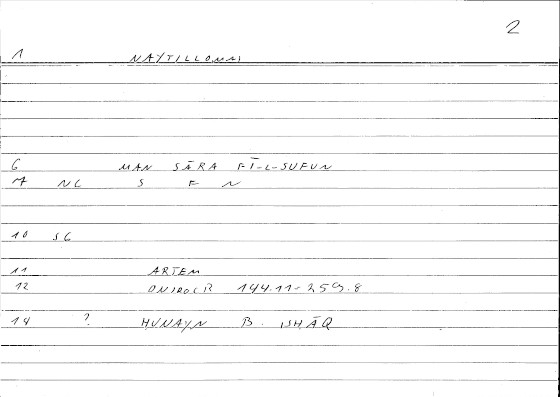 2
1 NAYTILLOMAI
6 MAN SĀRA FĪ-L-SUFUN
7 NC S F N
10 SG
11 ARTEM
12 ONIROCR 144.11-259.8
14 ? HUNAYN B. ISHĀQ